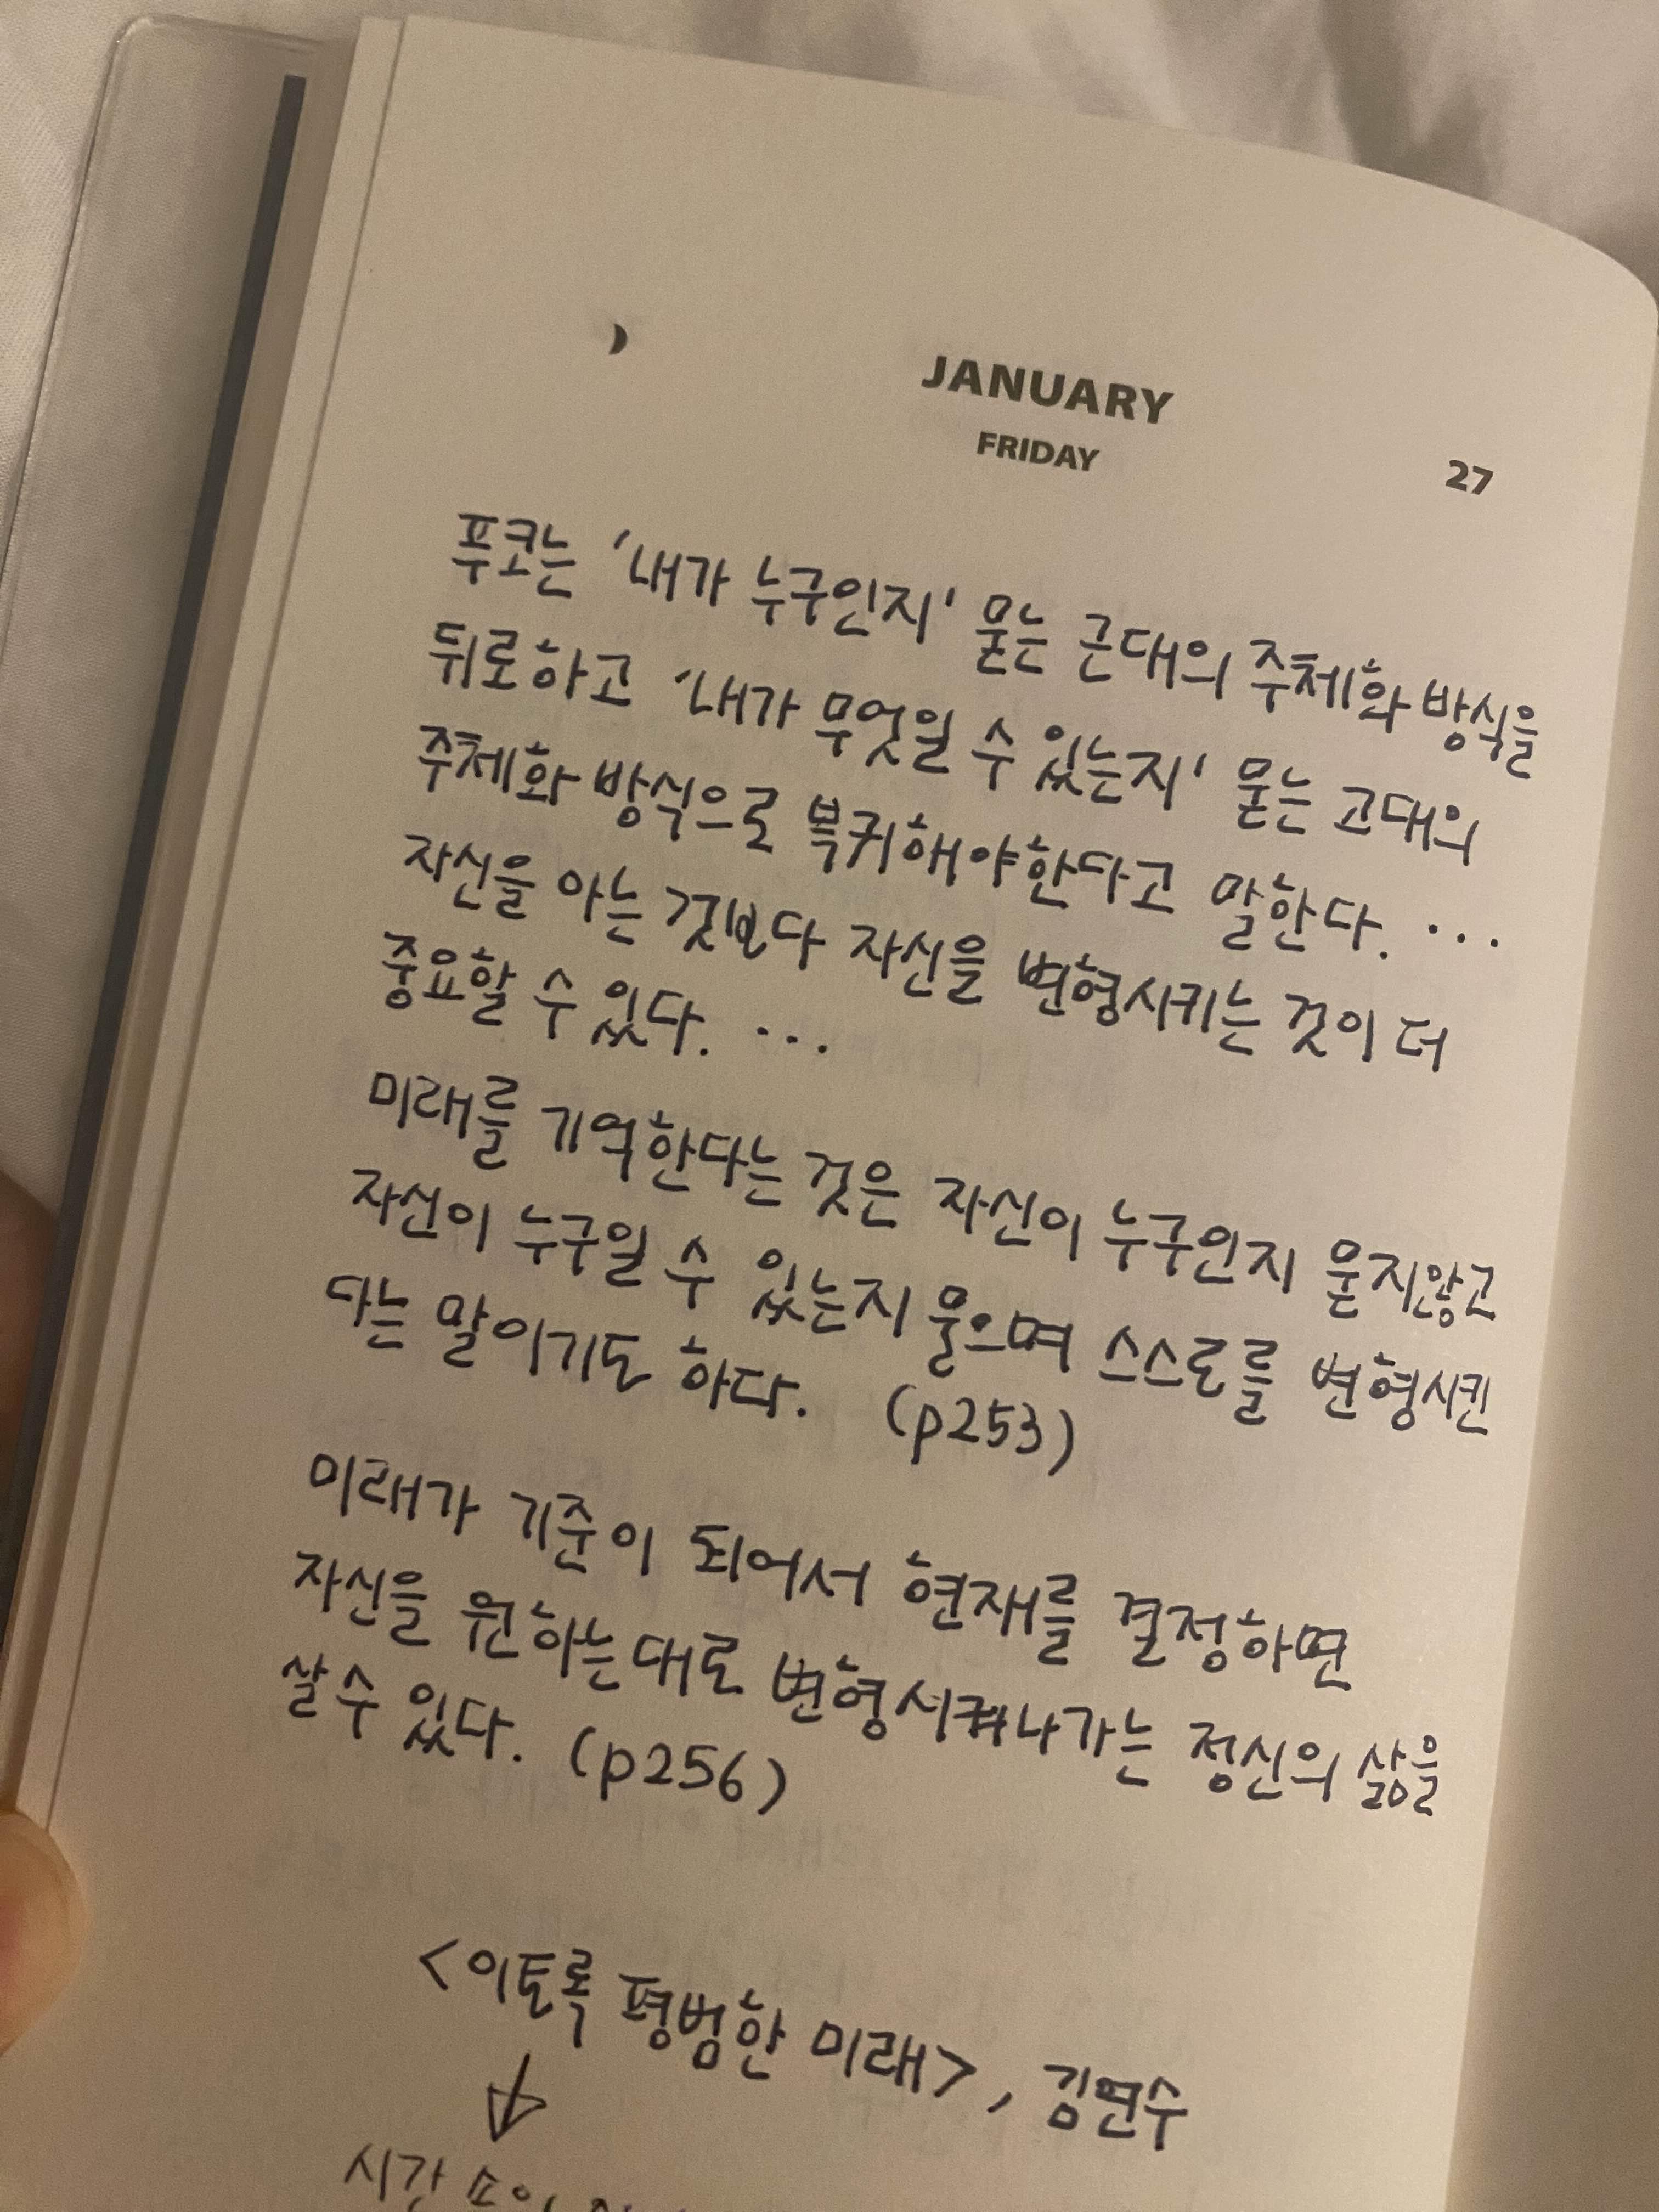 JANUARY
FRIDAY
27
푸코는 '내가 누구인지' 묻는 근대의 주체화 방식을
뒤로하고 '내가 무엇일 수 있는지' 묻는 고대의
주체화 방식으로 복귀해야한다고 말한다. ...
자신을 아는 것보다 자신을 변형시키는 것이 더
중요할 수 있다. ...
미래를 기억한다는 것은 자신이 누구인지 묻지않고
자신이 누구일 수 있는지 물으며 스스로를 변형시킨
다는 말이기도 하다. (p253)
미래가 기준이 되어서 현재를 결정하면
자신을 원하는대로 변형시켜나가는 정신의 삶을
살 수 있다. (p256)
<이토록 평범한 미래>, 김연수
시간